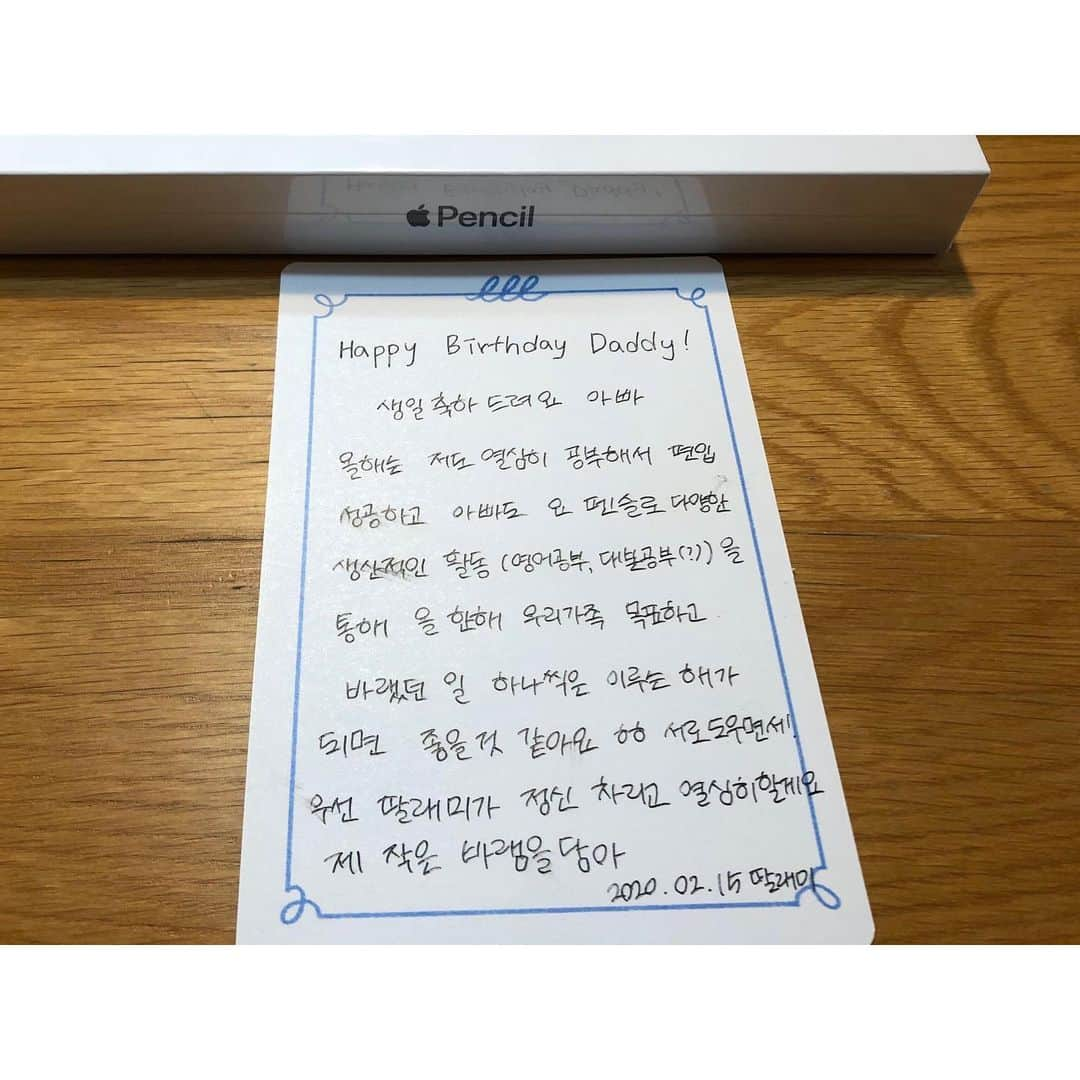 Pencil
Happy Birthday Daddy!
생일 축하 드려요 아빠
올해는 저도 열심히 공부해서 편입
성공하고 아빠도 요 펜슬로 다양한
생산적인 활동 (영어공부, 대본공부(?))을
통해 올 한해 우리가족 목표하고
바랬던 일 하나씩은 이루는 해가
되면 좋을것 같아요 ㅎㅎ 서로도우면세!
우선 딸래미가 정신 차리고 열심히할게요
제 작은 바램을담아
2020.02.15 딸래미